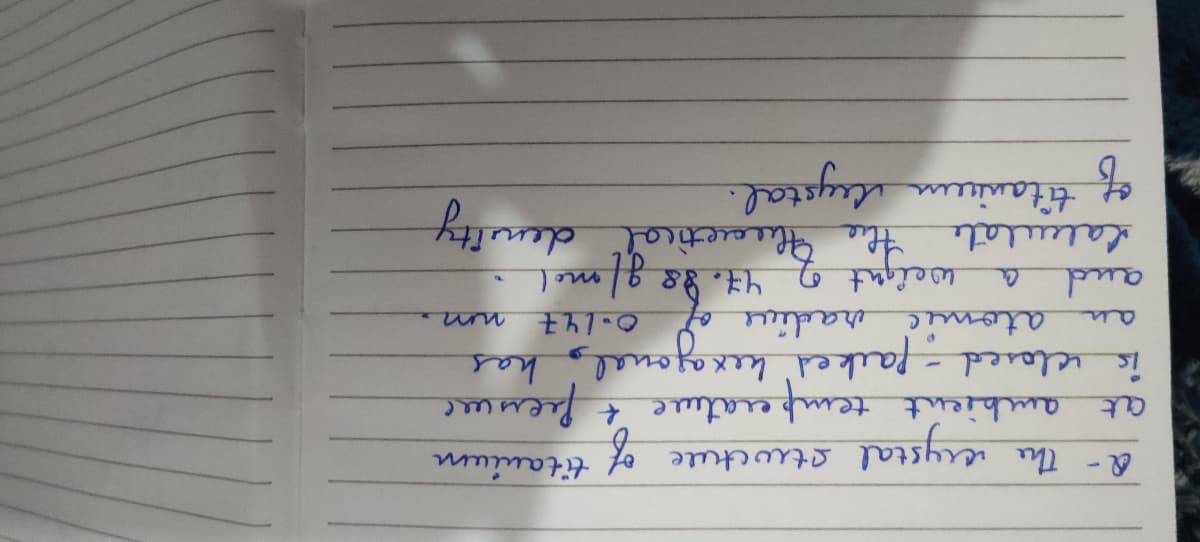 Q- The crystal structure of titanium
at ambient temperature & pressure
is closed-packed hexagonal, has
an atomic radius of 0.147 nm.
and a weight of 47.88 g/mol.
Calculate the theoretical density
of titanium crystal.